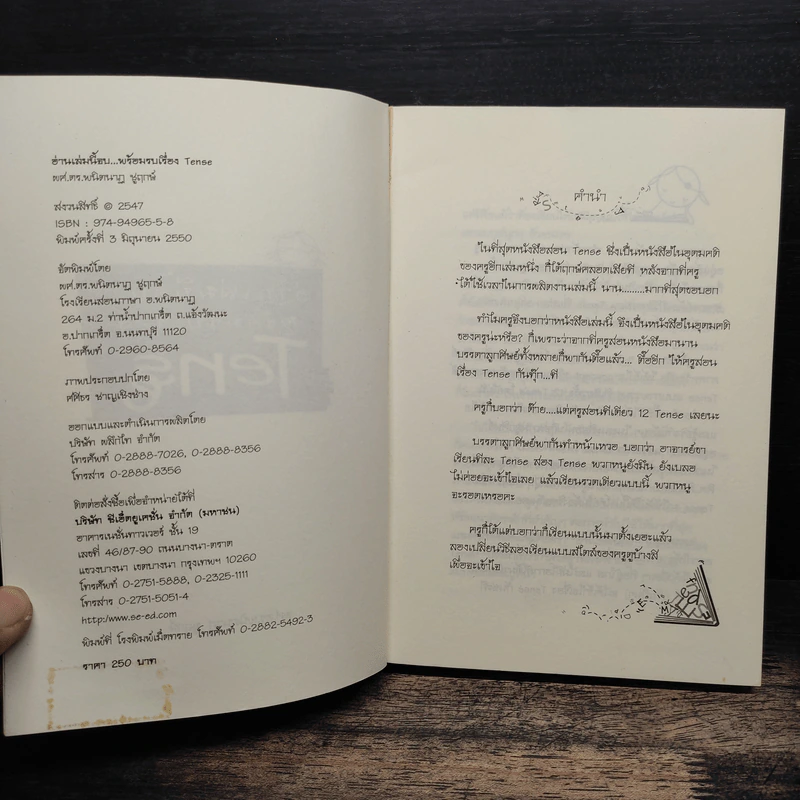 อ่านเล่มนี้จบ...พร้อมรบเรื่อง Tense
ผศ.ดร.พนิตนาฏ ชูฤกษ์
สงวนสิทธิ์ © 2547
ISBN : 974-94965-5-8
พิมพ์ครั้งที่ 3 มิถุนายน 2550
จัดพิมพ์โดย
ผศ.ดร.พนิตนาฏ ชูฤกษ์
โรงเรียนสอนภาษา อ.พนิตนาฏ
264 ม.2 ท่าน้ำปากเกร็ด ถ.แจ้งวัฒนะ
อ.ปากเกร็ด จ.นนทบุรี 11120
โทรศัพท์ 0-2960-8564
ภาพประกอบปกโดย
ศศิธร ชาญเชิงช่าง
ออกแบบและดำเนินการผลิตโดย
บริษัท พลีกิโท จำกัด
โทรศัพท์ 0-2888-7026, 0-2888-8356
โทรสาร 0-2888-8356
ติดต่อสั่งซื้อเพื่อจำหน่ายได้ที่
บริษัท ซีเอ็ดยูเคชั่น จำกัด (มหาชน)
อาคารเนชั่นทาวเวอร์ ชั้น 19
เลขที่ 46/87-90 ถนนบางนา-ตราด
แขวงบางนา เขตบางนา กรุงเทพฯ 10260
โทรศัพท์ 0-2751-5888, 0-2325-1111
โทรสาร 0-2751-5051-4
http:/www.se-ed.com
พิมพ์ที่ โรงพิมพ์เม็ดทราย โทรศัพท์ 0-2882-5492-3
ราคา 250 บาท
คำนำ
ในที่สุดหนังสือสอน Tense ซึ่งเป็นหนังสือในอุดมคติ
ของครูอีกเล่มหนึ่ง ก็ได้ฤกษ์คลอดเสียที หลังจากที่ครู
ได้ใช้เวลาในการผลิตงานเล่มนี้ นาน.........มากที่สุดขอบอก
ทำไมครูจึงบอกว่าหนังสือเล่มนี้ จึงเป็นหนังสือในอุดมคติ
ของครูน่ะหรือ? ก็เพราะว่าจากที่ครูสอนหนังสือมานาน
บรรดาลูกศิษย์ทั้งหลายก็พากันตื๊อแล้ว... ตื๊ออีก ให้ครูสอน
เรื่อง Tense กันทุ๊ก...ที
ครูก็บอกว่า ต๊าย....แต่ครูสอนทีเดียว 12 Tense เลยนะ
บรรดาลูกศิษย์พากันทำหน้าเหวอ บอกว่า อาจารย์ขา
เรียนทีละ Tense สอง Tense พวกหนูยังมึน ยังเบลอ
ไม่ค่อยจะเข้าใจเลย แล้วเรียนรวดเดียวแบบนี้ พวกหนู
จะรอดเหรอคะ
ครูก็ได้แต่บอกว่าก็เรียนแบบนั้นมาตั้งเยอะแล้ว
ลองเปลี่ยนวิธีลองเรียนแบบสไตล์ของครูดูบ้างสิ
เผื่อจะเข้าใจ